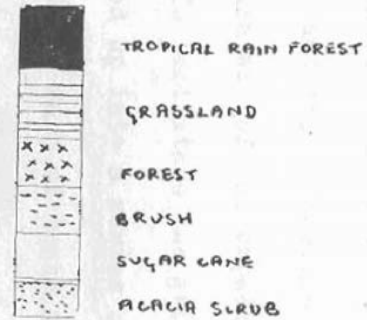 TROPICAL RAIN FOREST
GRASSLAND
FOREST
BRUSH
SUGAR CANE
ACACIA SCRUB